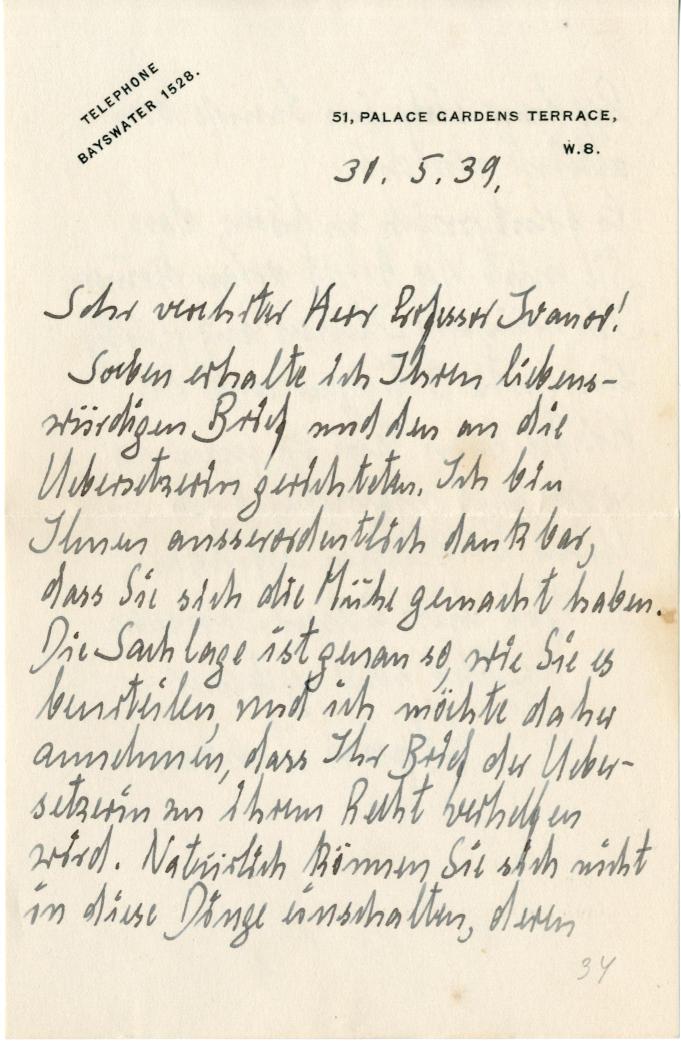 TELEPHONE
BAYSWATER 1528.
51, PALACE GARDENS TERRACE,
W.8.
31. 5. 39.
Sehr verehrter Herr Professor Ivanov!
Soeben erhalte ich Ihren liebens-
würdigen Brief und den an die
Uebersetzerin gerichteten. Ich bin
Ihnen ausserordentlich dankbar,
dass Sie sich die Mühe gemacht haben.
Die Sachlage ist genau so, wie Sie es
beurteilen, und ich möchte daher
annehmen, dass Ihr Brief der Ueber-
setzerin zu ihrem Recht verhelfen
wird. Natürlich können Sie sich nicht
in diese Dinge einschalten, deren
34